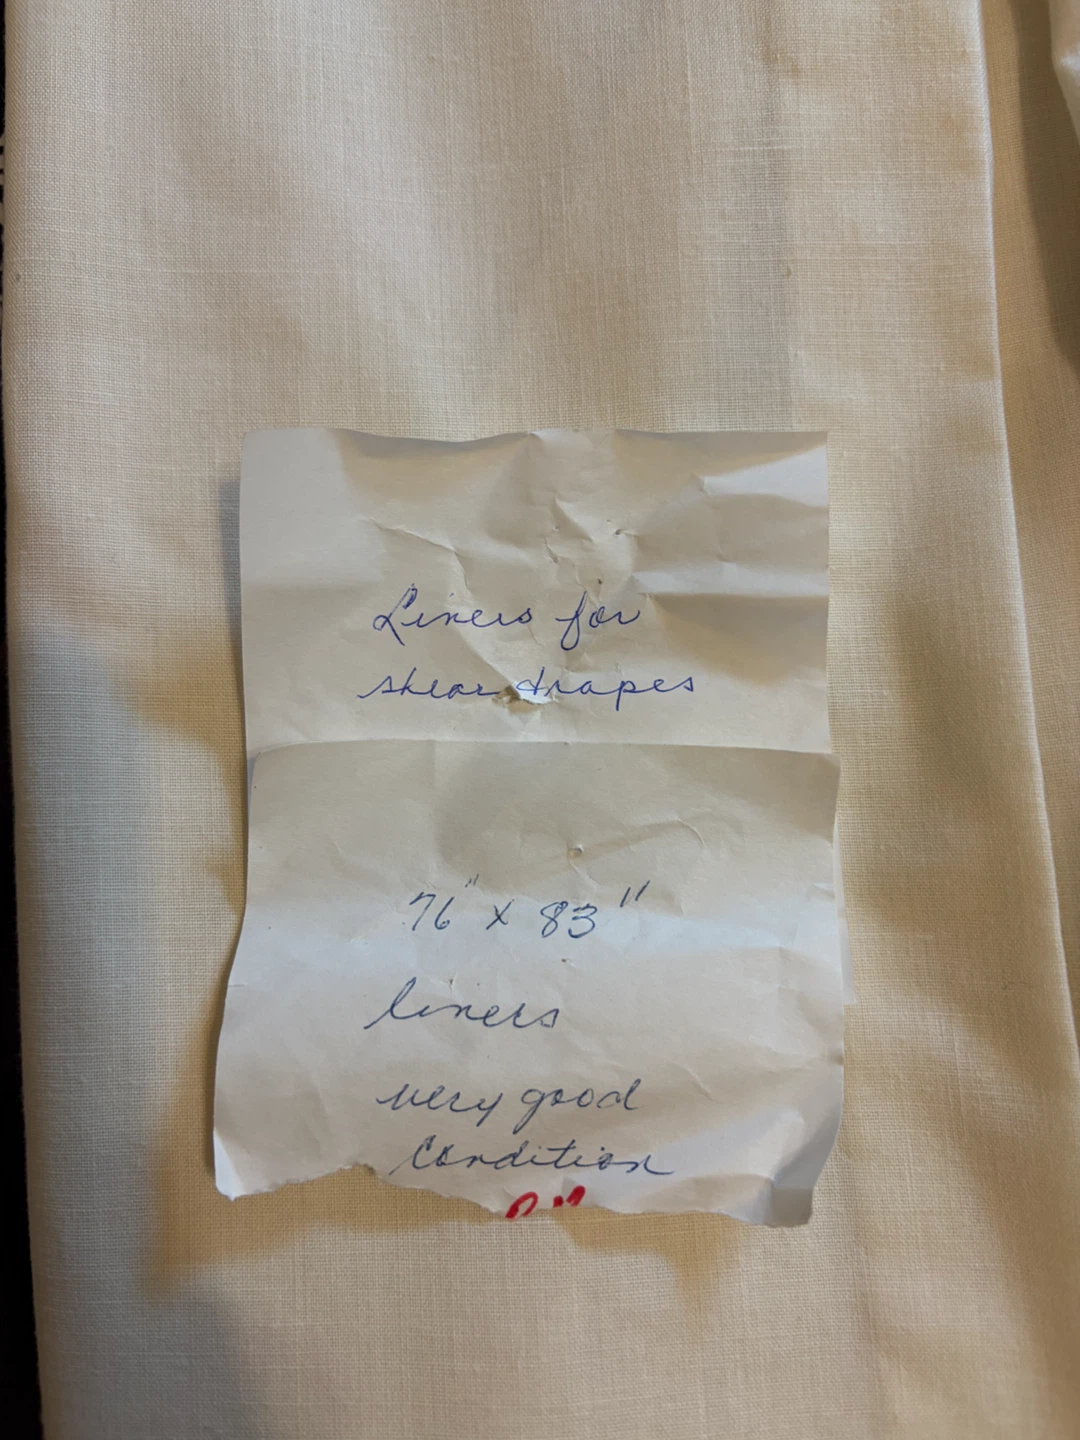 Liners for
shear drapes
76" x 83"
liners
very good
condition